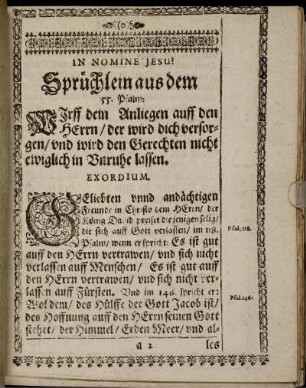 IN NOMINE JESU!
Sprüchlein aus dem
55. Psalm:
WIrff dein Anliegen auff den
HErrn / der wird dich versor-
gen / vnd wird den Gerechten nicht
ewiglich in Vnruhe lassen.
EXORDIUM.
GEliebten vnnd andächtigen
Freunde in Christo dem HErrn / der
König David preiset diejenigen selig /
die sich auff Gott verlassen / im 118.
Psalm / wenn er spricht: Es ist gut
Psal. 118.
auff den HErrn vertrawen / vnd sich nicht
verlassen auff Menschen / Es ist gut auff
den HErrn vertrawen / vnd sich nicht ver-
lassen auff Fürsten. Vnd im 146. spricht er:
Psal. 146.
Wol dem / des Hülffe der Gott Jacob ist /
des Hoffnung auff den HErrn seinen Gott
stehet / der Himmel / Erden Meer / vnd al-
a 2
les